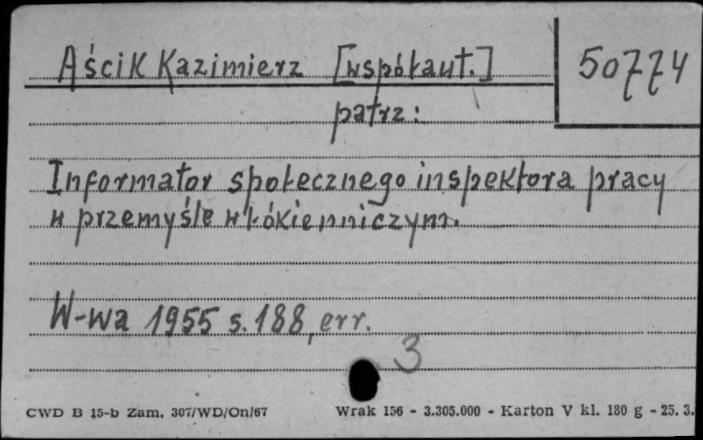 Aścik Kazimierz [współaut.] 50774
patrz:
Informator społecznego inspektora pracy
w przemyśle włókienniczym.
W-wa 1955 s. 188, err.
3
CWD B 15-b Zam. 307/WD/On/67 Wrak 156 - 3.305.000 - Karton V kl. 180 g - 25. 3.